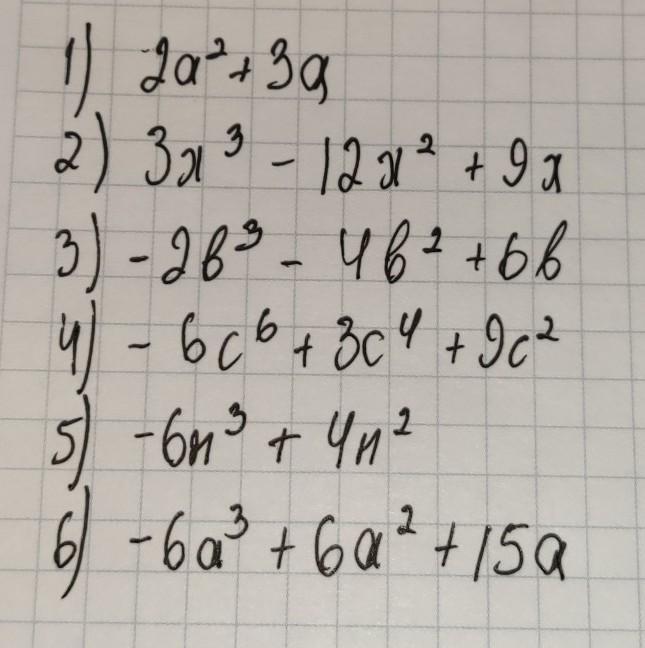 1) 2a² + 3a
2) 3x³ - 12x² + 9x
3) - 2b³ - 4b² + 6b
4) - 6c⁶ + 3c⁴ + 9c²
5) -6n³ + 4n²
6) -6a³ + 6a² + 15a